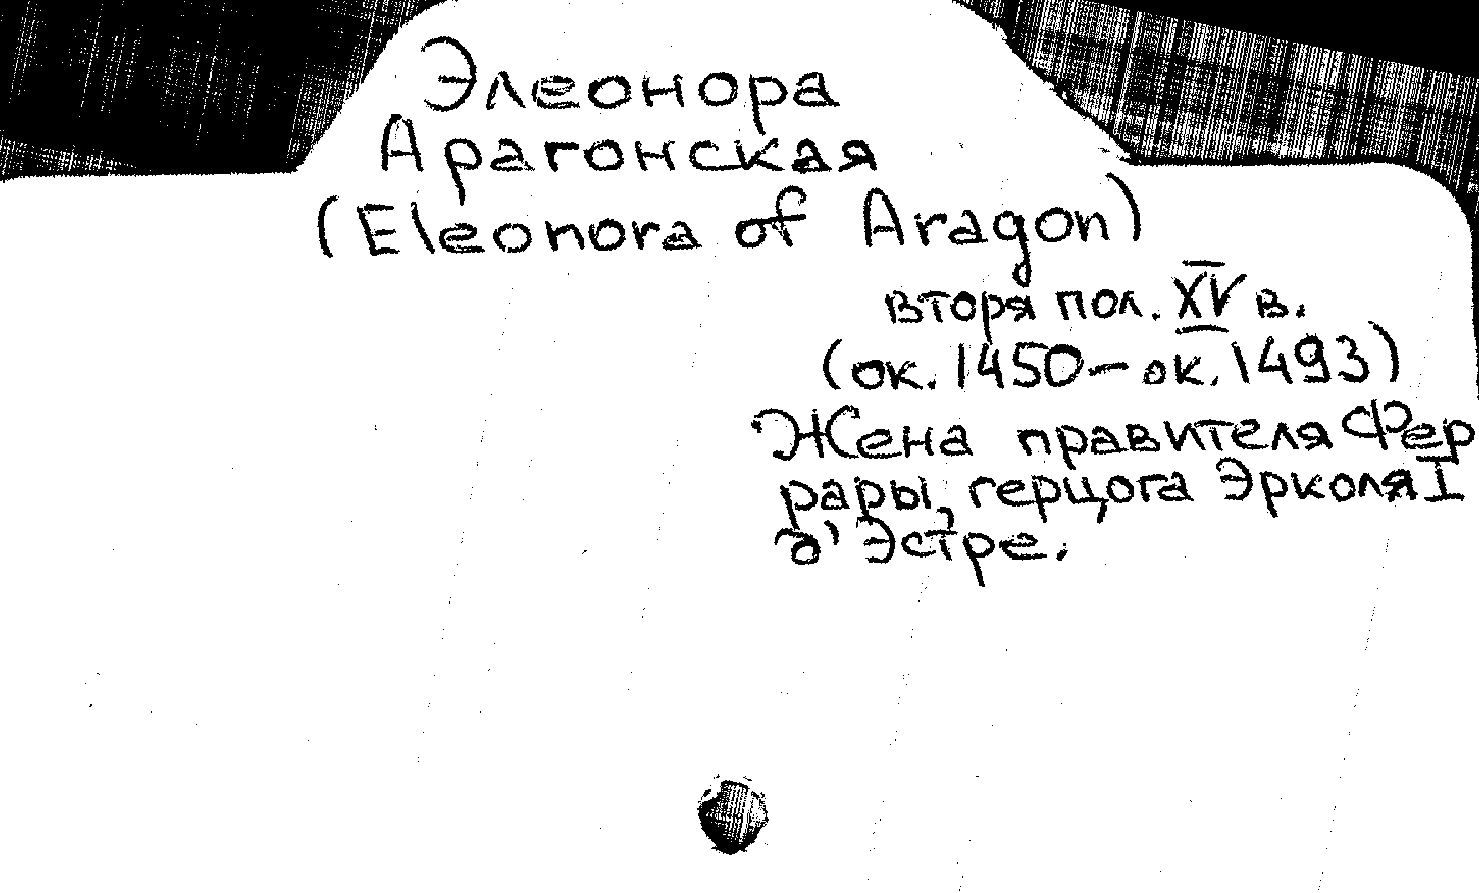 Элеонора
Арагонская
(Eleonora of Aragon)
вторя пол. XV в.
(ок. 1450 – ок. 1493)
Жена правителя Фер
рары, герцога Эрколя I
д'Эстре.